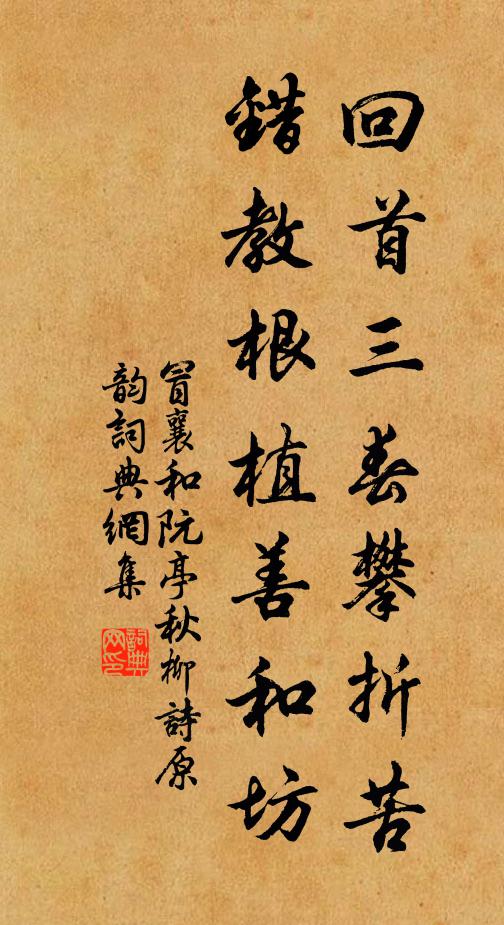 回首三春攀折苦
錯教根植善和坊
冒襄和阮亭秋柳詩原
韵詞典網集
詞典
网印